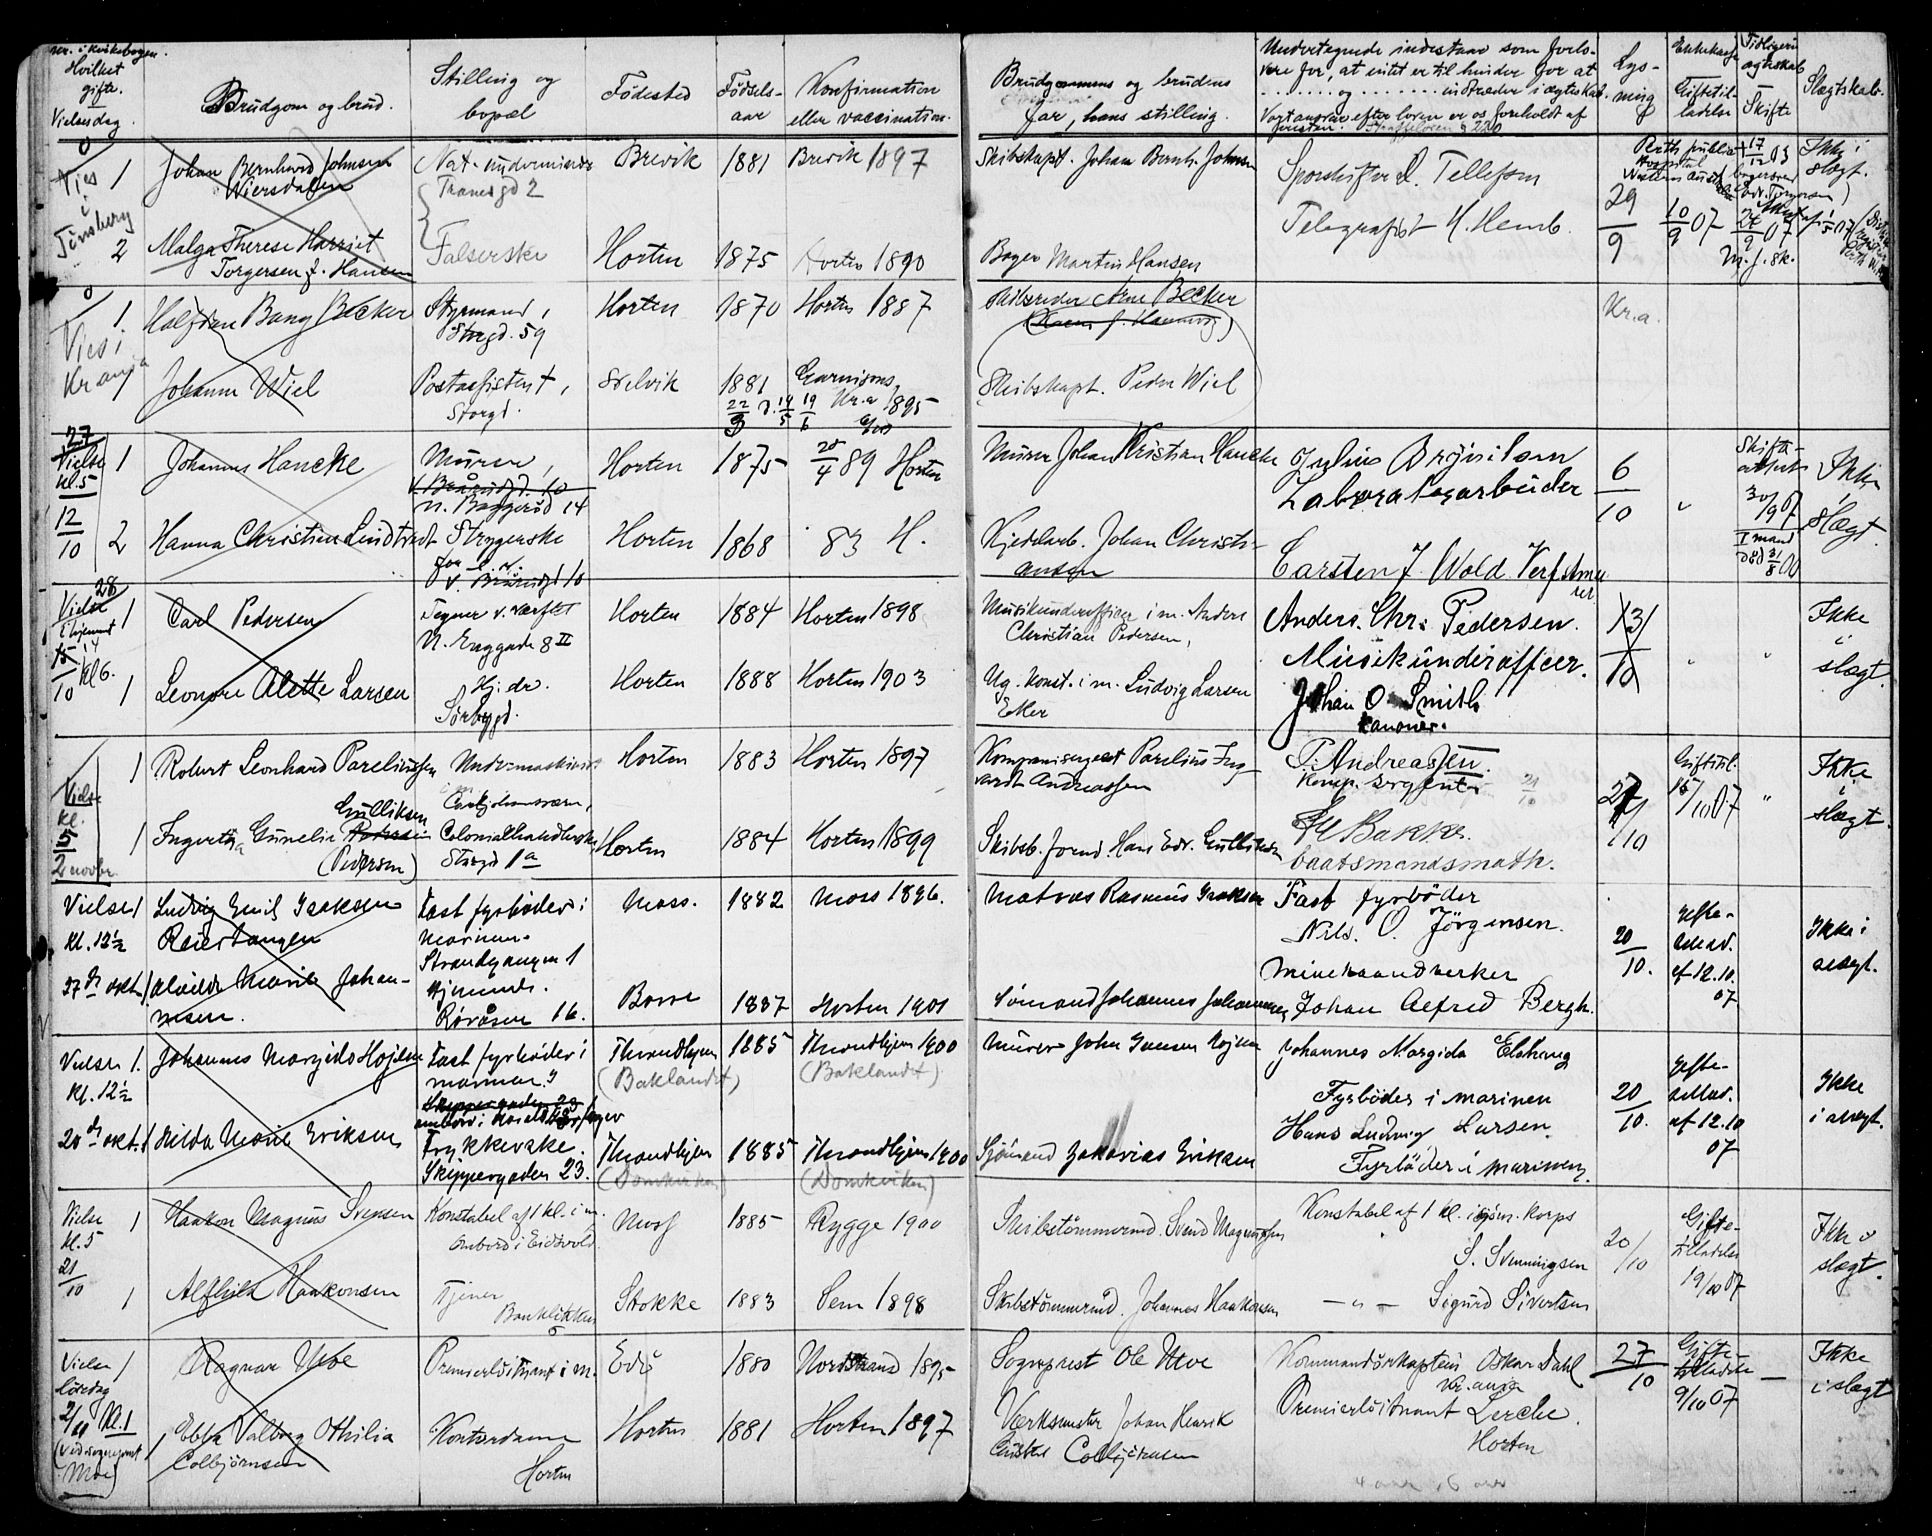 Nr. i kirkebogen.
Hvilket
gifte.
Vielsesdag
Brudgom og brud.
Stilling og
bopæl
Fødested
Fødsels-
aar
Konfirmation
eller vaccination.
Brudgommens og brudens
far, hans stilling.
Undertegnede indestaar som forlo-
vere for, at intet er til hinder for at
........ og ........ indtræder i ægteskab.
Vort ansvar efter loven er os foreholdt af
Lys-
ning
Giftetil-
ladelse
Tidligere
ægteskab
Skifte
Slægtskab.
0
Vies
i
Tønsberg
1
Johan Bernhard Johnsen
Wiersdalen
Tranesgd 2
Brevik
1881
Brevik 1897
Skibskapt. Johan Bernh. Johnsen
Tellefsen
Perth public
Hospital
17/12 03
Ikke i
slægt.
2
Malga Therese Harriet
Torgersen f. Hansen
Falserske
Horten
1875
Horten 1890
Bager Martin Hansen
Telegrafist H. Hemb.
29/9
10/9 07
26/9 07
0
Vies i
Kr ania
1
Halfdan Bang Becker
Styrmand,
Storgd. 59
Horten
1870
Horten 1887
Skibsreder Arne Becker
Kr.a.
1
Johanne Wiel
Postassistent,
Storgd.
Svelvik
1881
Garnisons,
Kr.a 1895
Skibskapt. Peder Wiel
27
Vielse
kl. 5
12/10
1
Johannes Hancke
Murer,
V. Braarudgd. 10
N. Baggerød 14
Horten
1875
4 89 Horten
Murer Johan Kristian Hancke
Julius Brynilsen
Laboratoriearbeider
6/10
"
Skifte-
attest
30/9 07
I mand
død 3/8 00
Ikke
i
slægt.
2
Hanna Christine Lindtvedt
Strygerske
V. Braarudgd 10
Horten
1868
83 H.
Kjedelarb. Johan Christi-
ansen
Carsten J. Wold. Verfstmu
rer
28
Vielse
i hjemmet
14
10 kl 6.
1
Carl Pedersen
Tegner v. værftet
N. Enggade 8 II
Horten
1884
Horten 1898
Musikunderofficer i m. Anders
Christian Pedersen,
Anders. Chr. Pedersen.
Musikunderofficer.
13/10
"
"
Ikke
i
slægt.
1
Leonore Alette Larsen
Hj. dr.
Sørbygd.
Horten
1888
Horten 1903
Ug. Konst. i m. Ludvig Larsen
Eker
Johan O. Smith
Kanoner.
Vielse
kl.
5
2 novbr
1
Robert Leonhard Pareliussen
Undr-maskinist
Carljohansværn,
Horten
1883
Horten 1897
Kompanisergeant Parelius Ing-
vardt Andreassen
P. Andreassen.
Komp. sergent.
27/10
Giftetil.
15/10 07
"
Ikke
i
slægt.
1
Ingvertha Gunelie Pedersen
Gulliksen
(Pedersen)
Colonialhandlerske
Storgd 1a
Horten
1884
Horten 1899
Skibsb. formd. Hans Edv. Gulliksen
Bakke.
baatsmandsmath.
Vielse
kl. 12½
27de okt.
1
Ludvig Emil Isaksen
Reiertangen
Fast fyrbøder i
marinen.
Strandgangen 1
Moss.
1882
Moss 1896.
Matros Rasmus Isaksen
Fast fyrbøder
Nils. O. Jörgensen.
20/10.
Gifte-
tillad.
af 12.10.
07
Ikke i
slægt.
1
Alvilde Marie Johan-
nesen.
Hjemme.
Røråsen 16.
Borre
1887
Horten 1901
Sømand Johannes Johannesen
Minehaandverker
Johan Alfred Bergh.
Vielse
kl. 12½
20de okt.
1.
Johannes Margido Hojem
Fast fyrbøder i
marinen.
Skippergaden 23
Throndhjem
(Baklandet)
1885
Throndhjem 1900
(Baklandet)
Murer John Hojem
Johannes Margido
Fyrbøder i marinen
20/10.
Gifte-
tillad.
af 12.10
07
Ikke
i slægt.
1
Hilda Marie Eriksen
Skippergaden 23.
Throndhjem
(Domkirken)
1885
Throndhjem 1900
(Domkirken)
Sjömand Zakarias Eriksen
Hans Ludvig Larsen.
Fyrböder i marinen.
Vielse
kl. 5
21/10
1
Haakon Magnus Svensen
Konstabel af 1 kl. i m.
Ombord i Eidsvold.
Moss
1885
Rygge 1900
Skibstømmermd. Svend Magnussen
Konstabel af 1 kl. i sjøm. korps
S. Svenningsen
20/10
Gifte-
tilladelse
19/10 07
Ikke i
slægt.
1
Alfhild Haakonsen
Tjener
Bankløkken
Stokke
1883
Sem 1898
Skibstømmermd. Johannes Haakonsen
— " — Sigurd Sivertsen
Vielse
Lørdag
2/11 Kl. 1
(ved sogneprest
Moe)
1
Ragnar Utve
Premierløitnant i m.
Eds
1880
Nordstrand 1895
Sogneprest Ole Utve
Kommandørkaptein Oskar Dahl
Kr.ania
27/10
Gifte-
tilladelse
9/10 07
—
Ikke
i slægt
1
Ebba Valborg Othilia
Colbjørnsen
Kontordame
Horten
Horten
1881
Horten 1897
Værksmester Johan Henrik
Colbjørnsen
Premierløitnant Lerche.
Horten